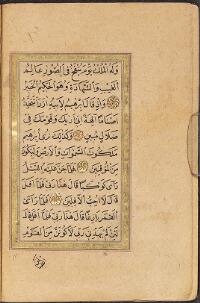 وله الملك يوم ينفخ في الصور عالم
الغيب والشهادة وهو الحكيم الخبير
واذ قال ابرهيم لابيه ازر اتتخذ
اصناما الهة اني اريك وقومك في
ضلال مبين وكذلك نري ابرهيم
ملكوت السموات والارض وليكون
من الموقنين فلما جن عليه الليل
رأى كوكبا قال هذا ربي فلما افل
قال لا احب الافلين فلما رأى
القمر بازغا قال هذا ربي فلما افل قال
لئن لم يهدني ربي لاكونن من القوم